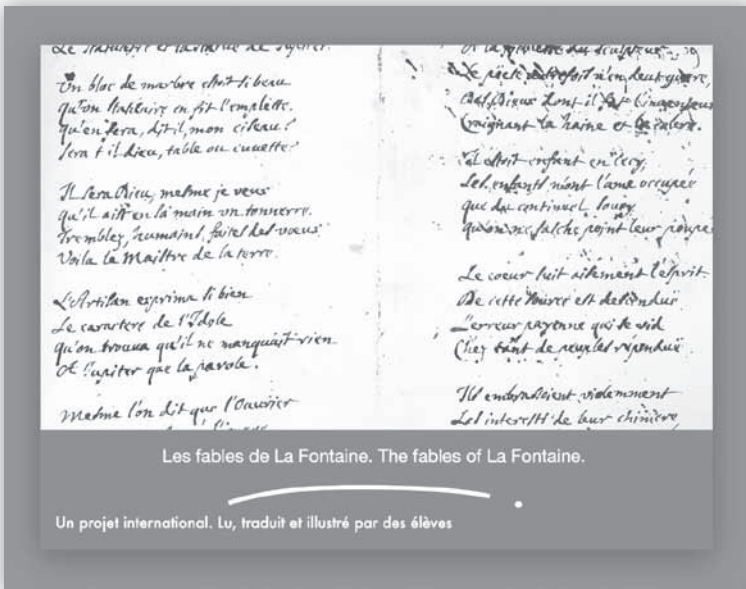 Le Statuaire et la statue de Jupiter.
Un bloc de marbre estoit si beau
qu'un Statuaire en fit l'emplette.
qu'en fera, dit il, mon ciseau?
sera t il Dieu, table ou cuuette?
Il sera Dieu, mesme je veux
qu'il ait en la main un tonnerre.
Tremblez, humains, faites des voeux
Voila le Maistre de la terre.
L'Artisan exprima si bien
Le caractere de l'Idole
qu'on trouua qu'il ne manquait rien
A Jupiter que la parole.
Mesme l'on dit que l'Ouurier
A la du sculpteur
Le poëte autrefois n'en deut guere,
Des Dieux dont il fut l'inuenteur
Craignant la haine et la colere.
il estoit enfant en cecy,
Les enfants n'ont l'ame occupée
que du continuel soucy
qu'on ne fasche point leur poupée
Le coeur suit aisement l'esprit.
De cette source est descenduë
L'erreur payenne qui se vid
Chez tant de peuples répenduë
Ils embrassoient violemment
Les interests de leur chimere,
Les fables de La Fontaine. The fables of La Fontaine.
Un projet international. Lu, traduit et illustré par des élèves